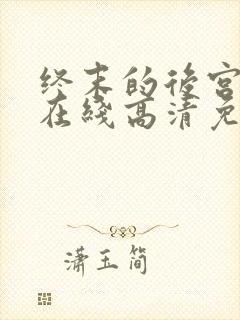 终末的後宫
在线高清免
潇玉简